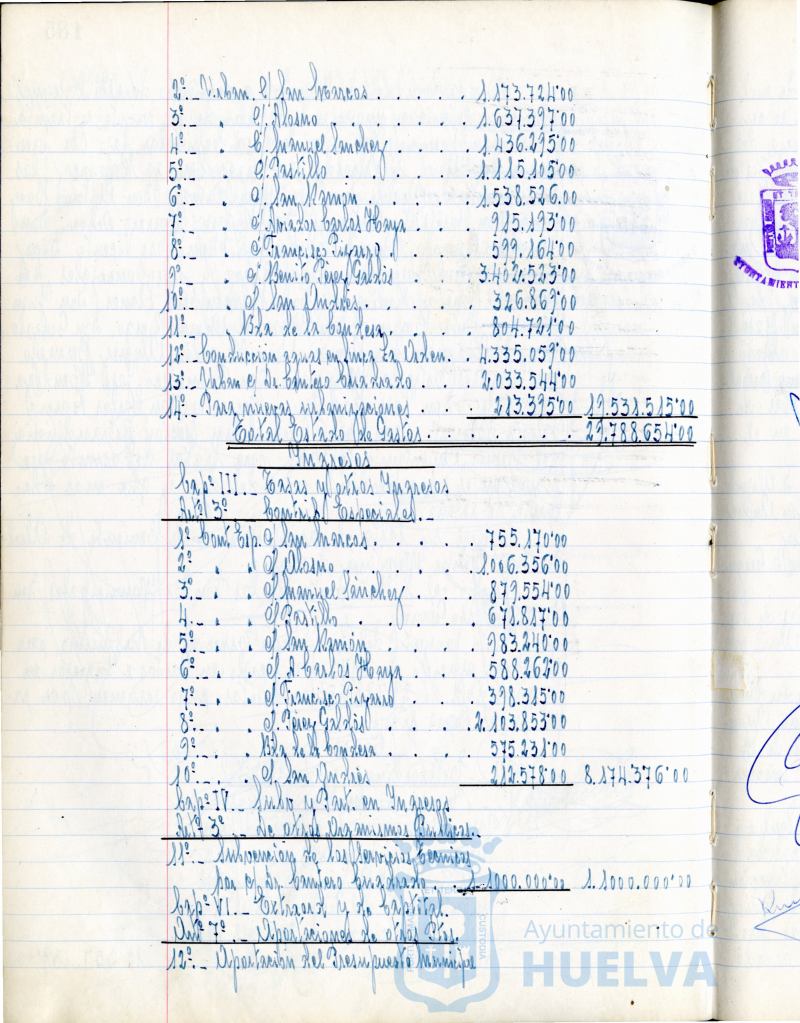 2º.- Urban. C/ San Marcos . . . . . 1.173.724'00
3º.- " C/ Alosno . . . . . 1.637.397'00
4º.- " C/ Manuel Sánchez . . . 1.436.295'00
5º.- " C/ Pastillo . . . . 1.115.105'00
6º.- " C/ San Ramón . . . . 1.538.526.00
7º.- " C/ Aviador Carlos Haya . . . 915.193'00
8º.- " C/ Francisco Pizarro . . . 599.164'00
9º.- " C/ Benito Perez Galdós . 3.402.523'00
10º.- " C/ San Andrés . . . . 326.869'00
11º.- " Bda de la Condesa. . . . 804.721'00
12º.- Conducción aguas en linea La Orden. . 4.335.059'00
13.- Urban c/ Dr. Cantero Cuadrado . . 2.033.544'00
14º.- Para nuevas urbanizaciones . . . 213.395'00 19.531.515'00
Total Estado de Gastos . . . . . . . 29.788.654'00
Ingresos
Capº III.- Tasas y otros Ingresos
Artº 3º Contrib. Especiales.-
1º Cont. Esp. C/ San Marcos . . . . . 755.170'00
2º " " C/ Alosno . . . . . 1.006.356'00
3º.- " " C/ Manuel Sánchez . . . 879.554'00
4.- " " C/ Pastillo . . . . 671.817'00
5º.- " " C/ San Ramón . . . . 983.240'00
6º.- " " C/ A. Carlos Haya . . . 588.262'00
7º.- " " C/ Francisco Pizarro . . . 398.315'00
8º.- " " C/ Perez Galdós . . . 2.103.853'00
9º.- " Bda de la Condesa . . . . 575.231'00
10º.- " C/ San Andrés . . . . 212.578'00 8.174.376'00
Capº IV.- Subv. y Part. en Ingresos
Artº 3º - De otros Organismos Públicos.-
11º.- Subvención de los Servicios Técnicos
par c/ Dr. Cantero Cuadrado . . 1.1000.000'00 1.1000.000'00
Capº VI.- Extraord. y de Capital.
Artº 7º.- Aportaciones de otros Ptos.
12º.- Aportación del Presupuesto Municipal
Ayuntamiento de
HUELVA